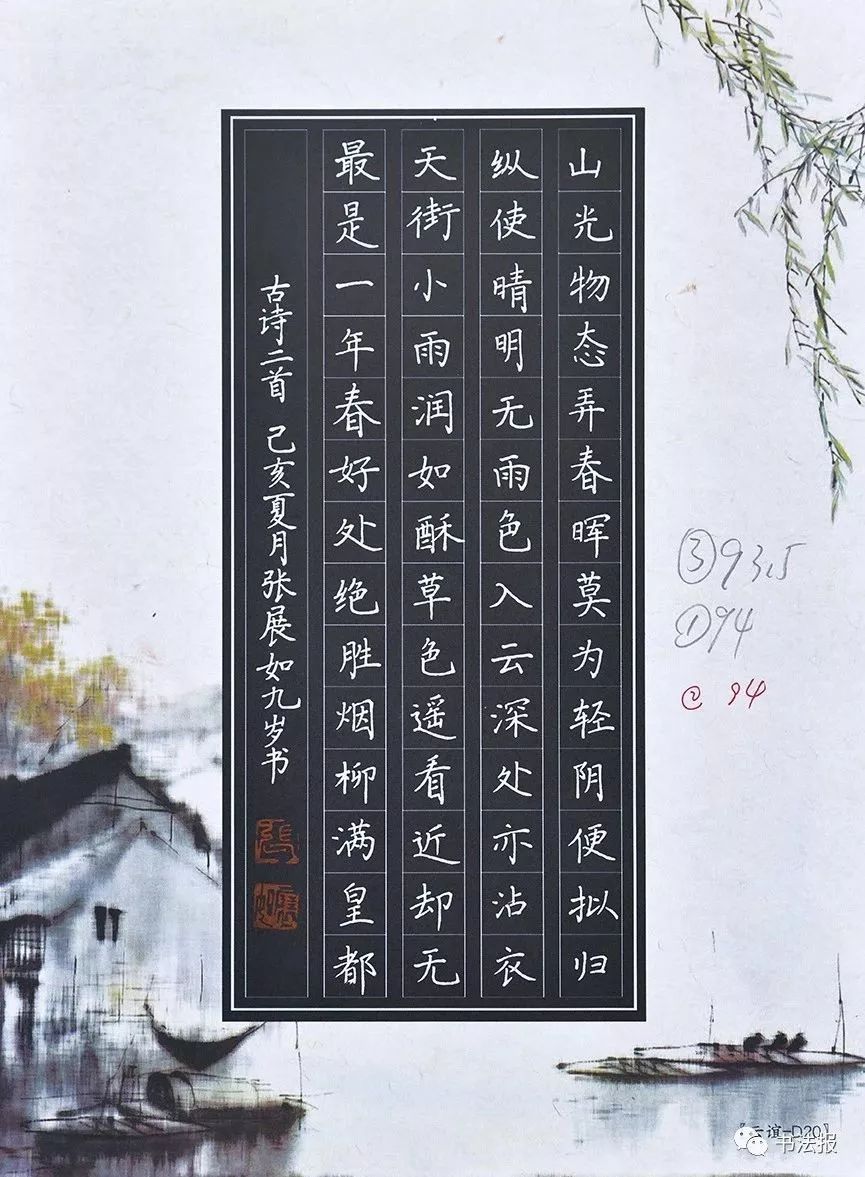 山光物态弄春晖莫为轻阴便拟归
纵使晴明无雨色入云深处亦沾衣
天街小雨润如酥草色遥看近却无
最是一年春好处绝胜烟柳满皇都
古诗二首 己亥夏月张展如九岁书
③93.5
①94
② 94
云谊-D20
书法报